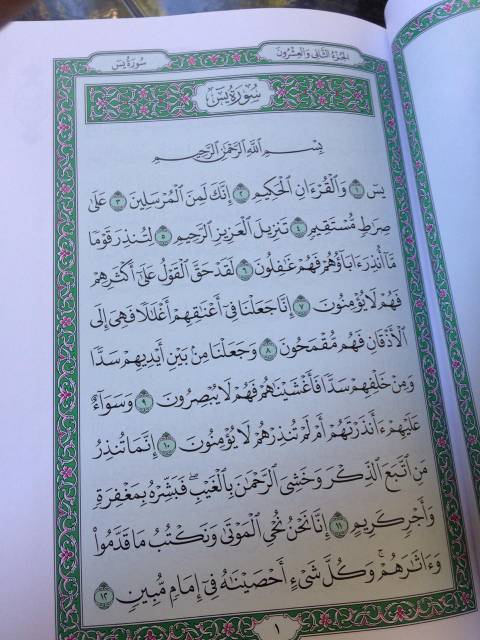 الجزء الثاني والعشرون
سورة يس
سُورَةُ يسٓ
بِسْمِ ٱللَّهِ ٱلرَّحْمَٰنِ ٱلرَّحِيمِ
يسٓ ١ وَٱلْقُرْءَانِ ٱلْحَكِيمِ ٢ إِنَّكَ لَمِنَ ٱلْمُرْسَلِينَ ٣ عَلَىٰ
صِرَٰطٍ مُّسْتَقِيمٍ ٤ تَنزِيلَ ٱلْعَزِيزِ ٱلرَّحِيمِ ٥ لِتُنذِرَ قَوْمًا
مَّآ أُنذِرَ ءَابَآؤُهُمْ فَهُمْ غَٰفِلُونَ ٦ لَقَدْ حَقَّ ٱلْقَوْلُ عَلَىٰٓ أَكْثَرِهِمْ
فَهُمْ لَا يُؤْمِنُونَ ٧ إِنَّا جَعَلْنَا فِىٓ أَعْنَٰقِهِمْ أَغْلَٰلًا فَهِىَ إِلَى
ٱلْأَذْقَانِ فَهُم مُّقْمَحُونَ ٨ وَجَعَلْنَا مِنۢ بَيْنِ أَيْدِيهِمْ سَدًّا
وَمِنْ خَلْفِهِمْ سَدًّا فَأَغْشَيْنَٰهُمْ فَهُمْ لَا يُبْصِرُونَ ٩ وَسَوَآءٌ
عَلَيْهِمْ ءَأَنذَرْتَهُمْ أَمْ لَمْ تُنذِرْهُمْ لَا يُؤْمِنُونَ ١٠ إِنَّمَا تُنذِرُ
مَنِ ٱتَّبَعَ ٱلذِّكْرَ وَخَشِىَ ٱلرَّحْمَٰنَ بِٱلْغَيْبِ ۖ فَبَشِّرْهُ بِمَغْفِرَةٍ
وَأَجْرٍ كَرِيمٍ ١١ إِنَّا نَحْنُ نُحْىِ ٱلْمَوْتَىٰ وَنَكْتُبُ مَا قَدَّمُوا۟
وَءَاثَٰرَهُمْ ۚ وَكُلَّ شَىْءٍ أَحْصَيْنَٰهُ فِىٓ إِمَامٍ مُّبِينٍ ١٢
١